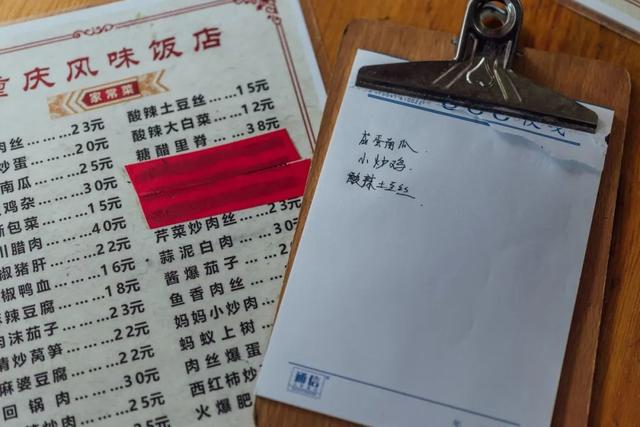 重庆风味饭店
家常菜
肉丝......23元
炒蛋......20元
南瓜......25元
鸡杂......30元
包菜......15元
腊肉......40元
椒猪肝......22元
椒鸭血......16元
辣豆腐......18元
肉沫茄子......23元
清炒莴笋......22元
麻婆豆腐......22元
回锅肉......30元
......25元
酸辣土豆丝......15元
酸辣大白菜......12元
糖醋里脊......38元
芹菜炒肉丝......23元
蒜泥白肉......30
酱爆茄子......2
鱼香肉丝......
妈妈小炒肉......
蚂蚁上树......
肉丝爆蛋......
西红柿炒
火爆肥
蛋南瓜
小炒鸡
酸辣土豆丝
通信